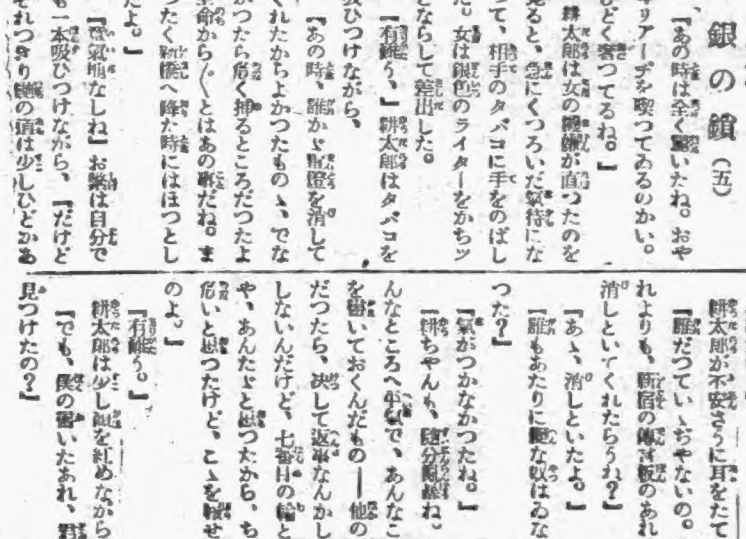 銀の鎖（五）
『あの時は全く驚いたね。おや
キリアーヂを喫つてゐるのかい。
ひどく奢つてるね。』
耕太郎は女の機嫌が直つたのを
見ると、急にくつろいだ氣持にな
つて、相手のタバコに手をのばし
た。女は銀色のライターをかちッ
とならして差出した。
『有難う。』耕太郎はタバコを
吸ひつけながら、
『あの時、誰かゞ電燈を消して
くれたからよかつたものゝ、でな
かつたら危く捕るところだつたよ
命から〴〵とはあの事だね。ま
つたく新橋へ降た時にはほつとし
たよ。』
『意氣地なしね』お繁は自分で
も一本吸ひつけながら、『だけど
それつきり銀の頭は少しひどかあ
耕太郎が不安さうに耳をたて
『誰だつていゝぢやないの。
れよりも、新宿の傳言板のあれ
消しといてくれたらうね？』
『あゝ、消しといたよ。』
『誰もあたりに變な奴はゐな
つた？』
『氣がつかなかつたね。』
『耕ちやんも、隨分亂暴ね〉
んなところへ平氣で、あんなこ
を書いておくんだもの――他の
だつたら、決して返事なんかし
しないんだけど、七番目の輪と
や、あんたゞと思つたから、ち
危いと思つたけど、こゝを報せ
のよ。』
『有難う。』
耕太郎は少し顏を紅めながら
『でも、僕の書いたあれ、君
見つけたの？』